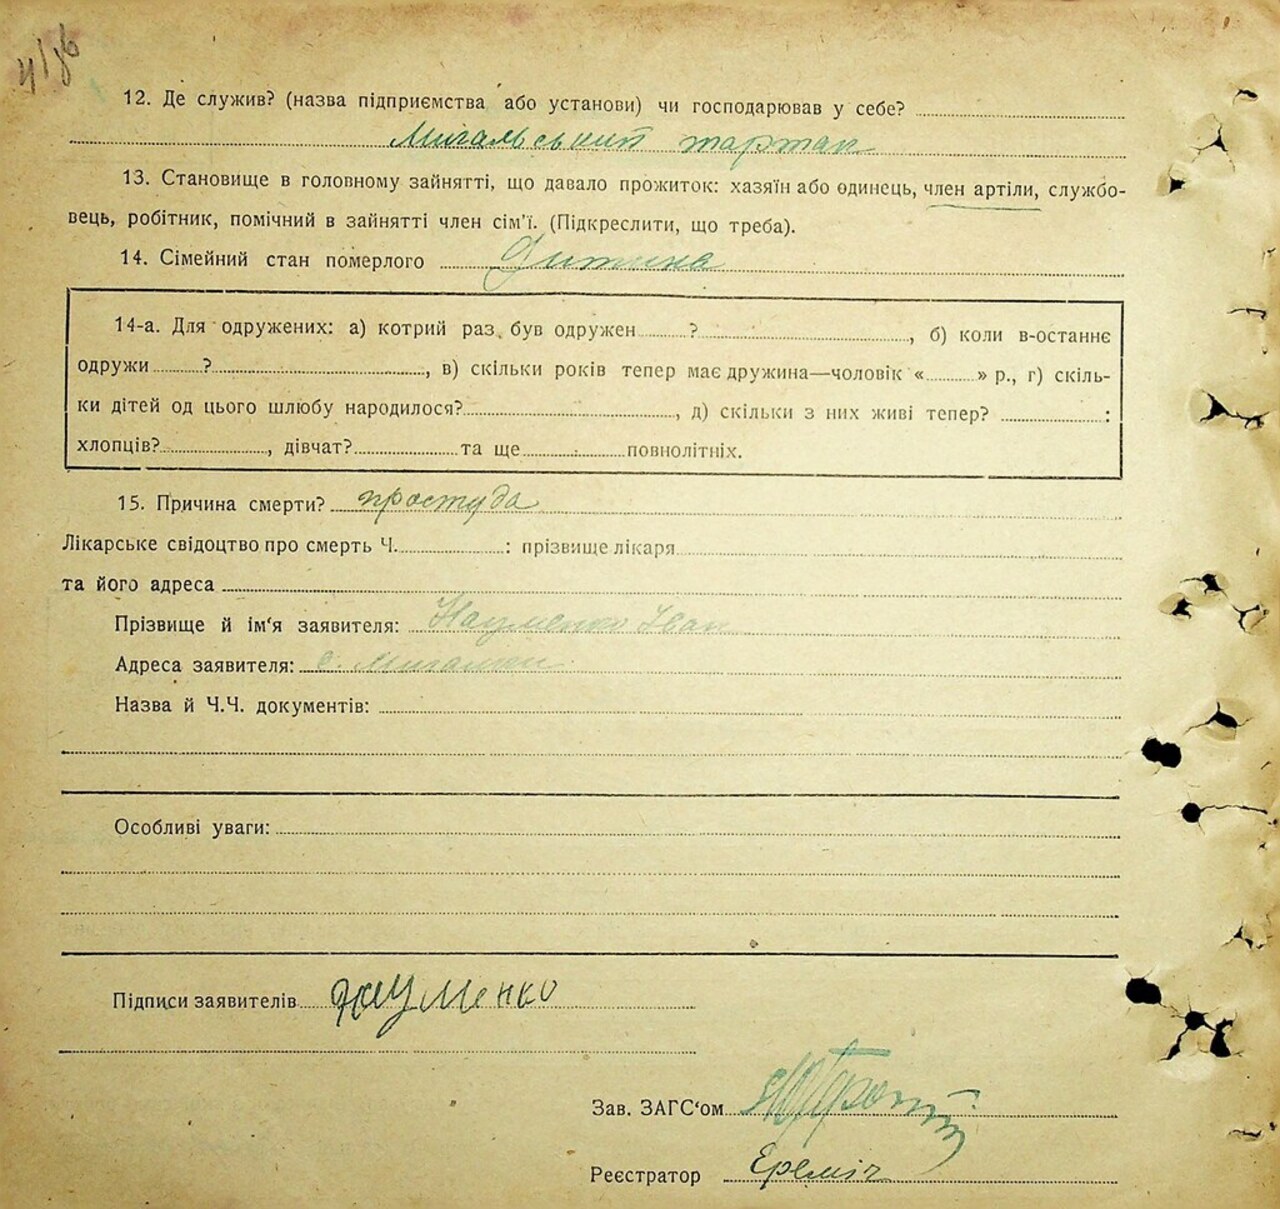 12. Де служив? (назва підприємства або установи) чи господарював у себе?
Мигальський тартак
13. Становище в головному зайнятті, що давало прожиток: хазяїн або одинець, член артіли, службо-
вець, робітник, помічний в зайнятті член сім'ї. (Підкреслити, що треба).
14. Сімейний стан померлого Дитина
14-а. Для одружених: а) котрий раз був одружен ........? ........, б) коли в-останнє
одружи ........? ........, в) скільки років тепер має дружина—чоловік «........» р., г) скіль-
ки дітей од цього шлюбу народилося? ........, д) скільки з них живі тепер? ........:
хлопців? ........, дівчат? ........ та ще ........ повнолітніх.
15. Причина смерти? простуда
Лікарське свідоцтво про смерть Ч. ........: прізвище лікаря
та його адреса
Прізвище й ім‘я заявителя: Науменко Іван
Адреса заявителя: с. Мигалки
Назва й Ч.Ч. документів:
Особливі уваги:
Підписи заявителів Науменко
Зав. ЗАГС‘ом
Реєстратор Ереміч